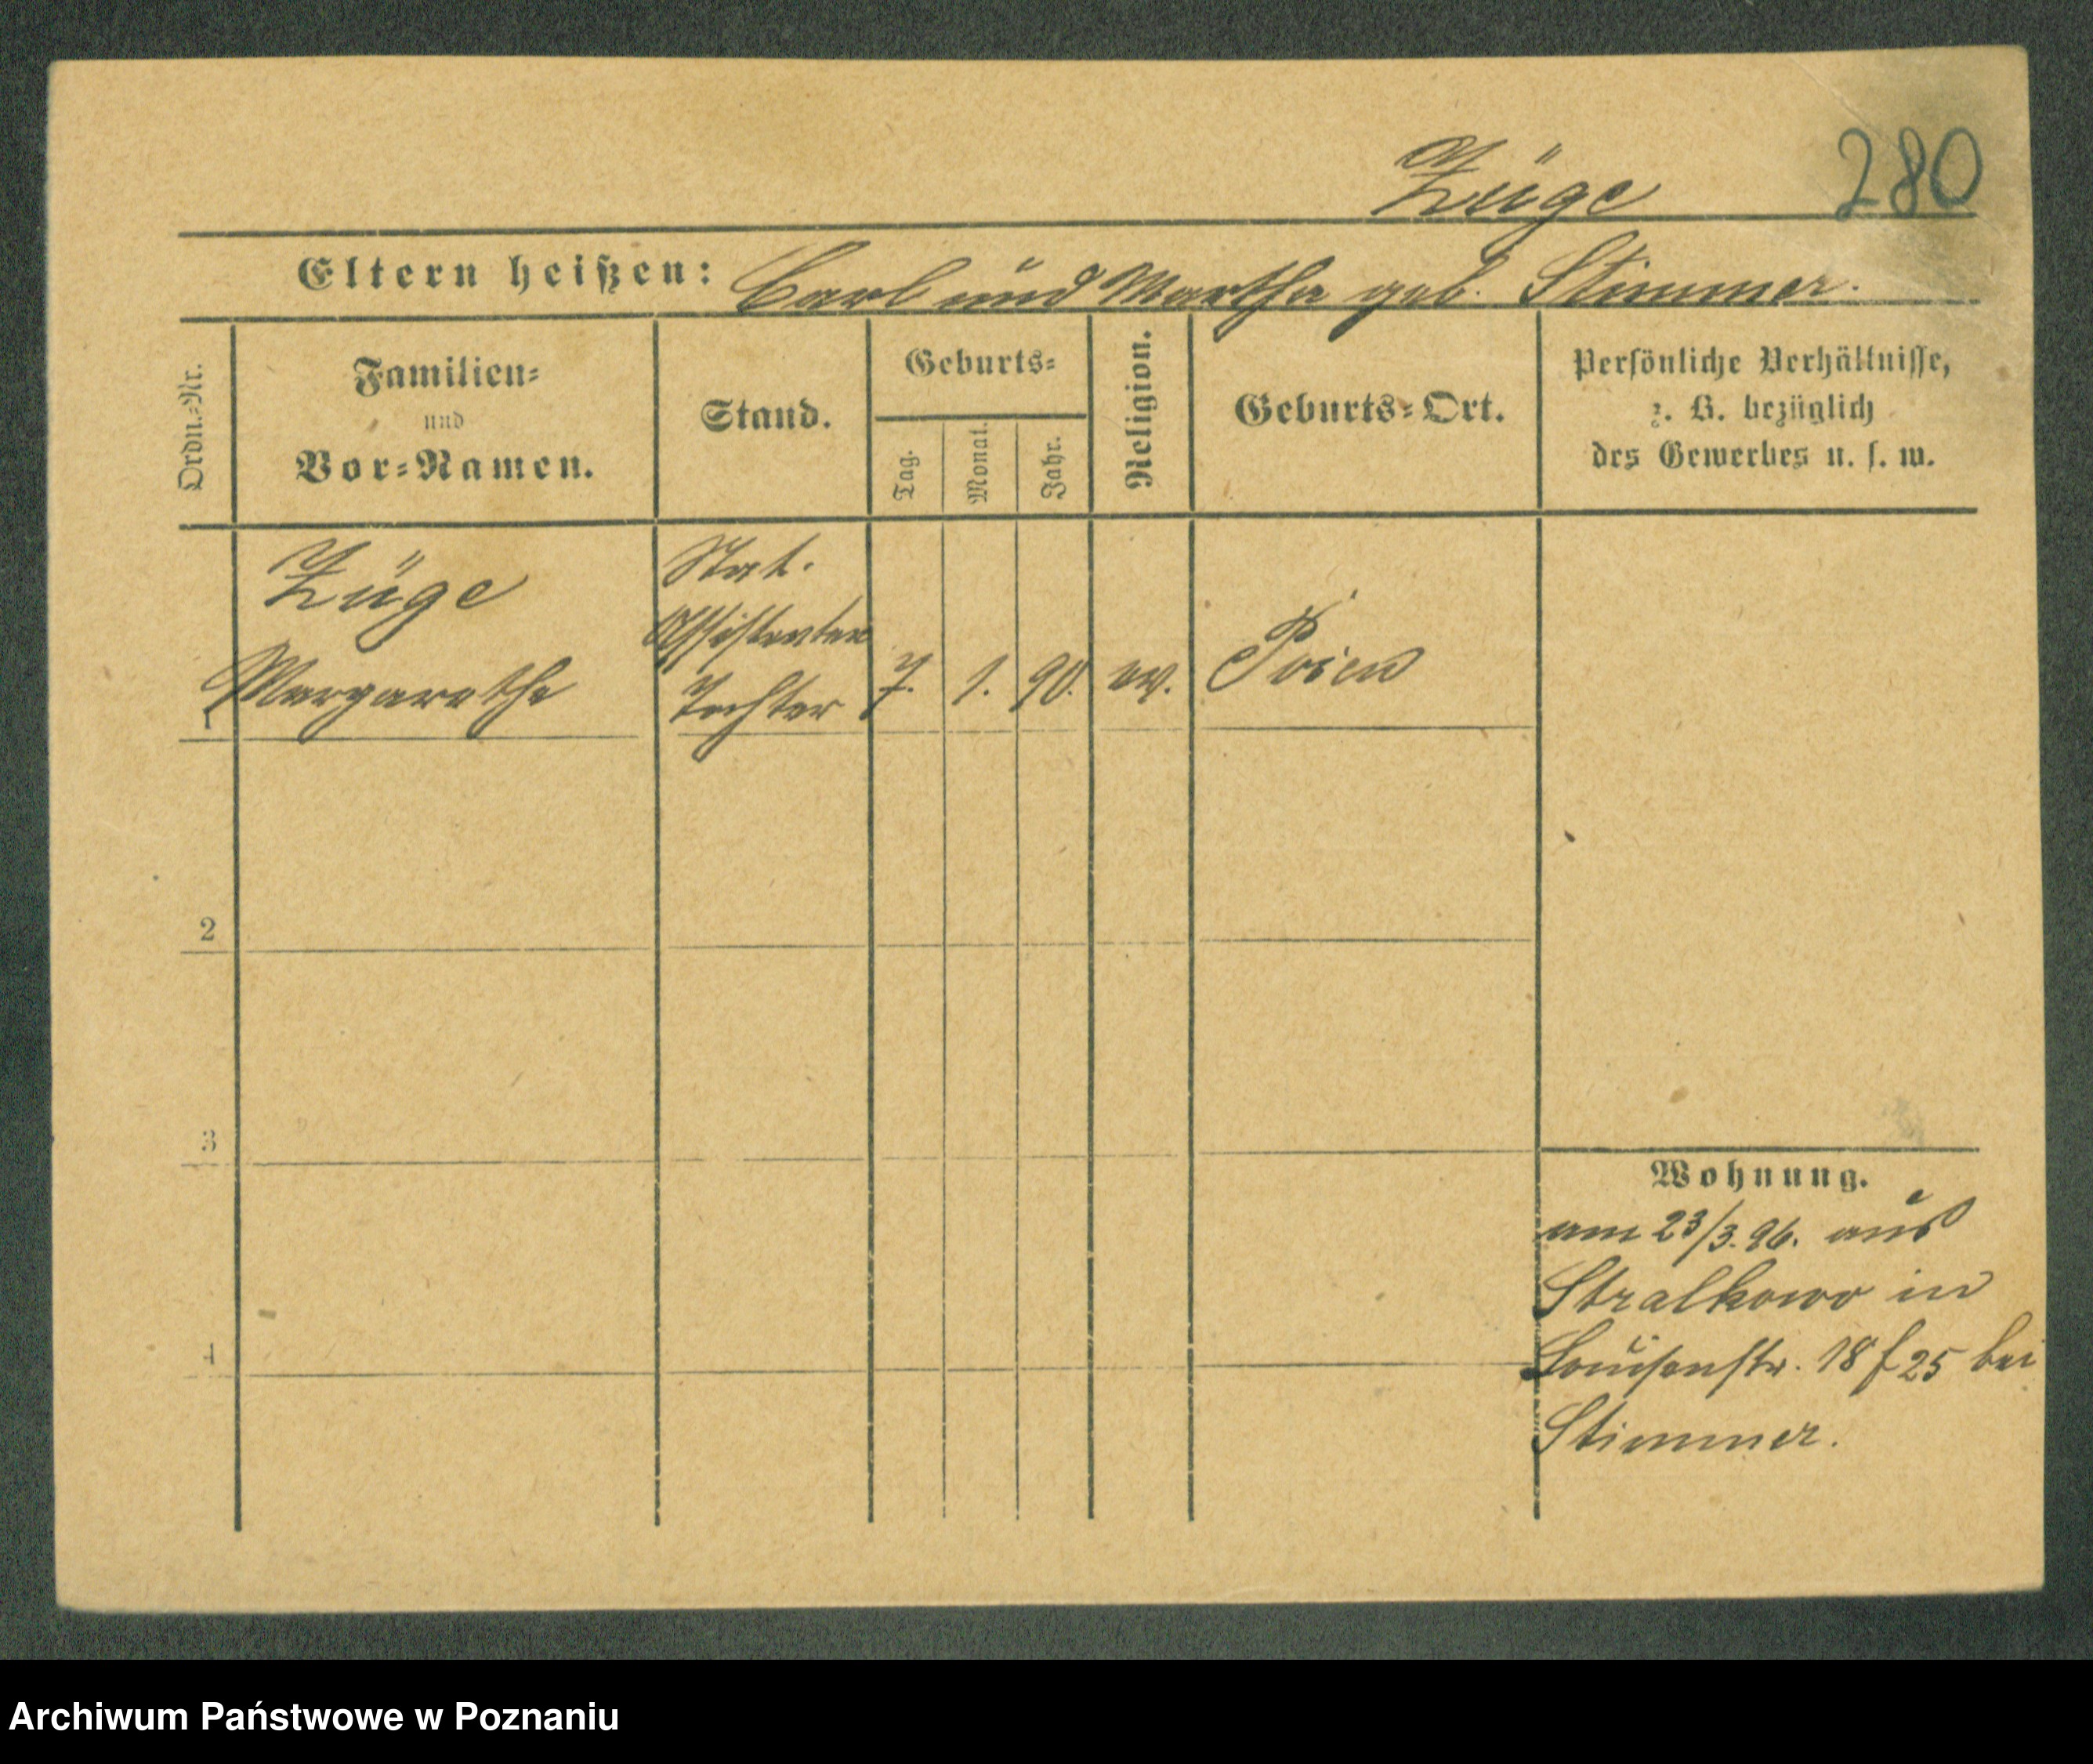 Züge 280
Eltern heißen: Carl und Martha geb. Stimmer.
Ordn.-Nr.
Familien-
und
Vor-Namen.
Stand.
Geburts-
Tag.
Monat.
Jahr.
Religion.
Geburts-Ort.
Persönliche Verhältnisse,
z. B. bezüglich
des Gewerbes u. s. w.
Züge Stat.
Assistenten
1 Margarethe Tochter 7. 1. 90. ev. Posen
2
3
4
Wohnung.
am 23/3. 96. aus
Stralkowo in
Louisenstr. 18 f 25 bei
Stimmer.
Archiwum Państwowe w Poznaniu